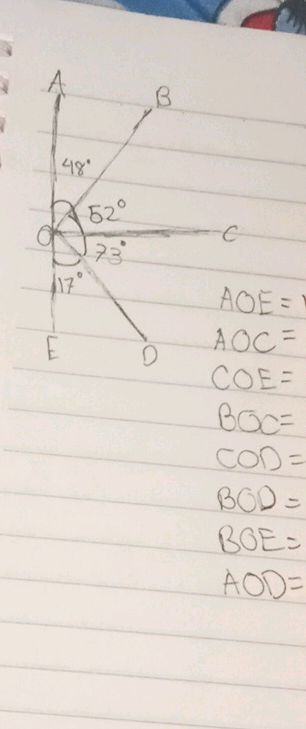 A
B
48°
52°
O
C
73°
17°
E
D
AOE=
AOC=
COE=
BOC=
COD=
BOD=
BOE=
AOD=